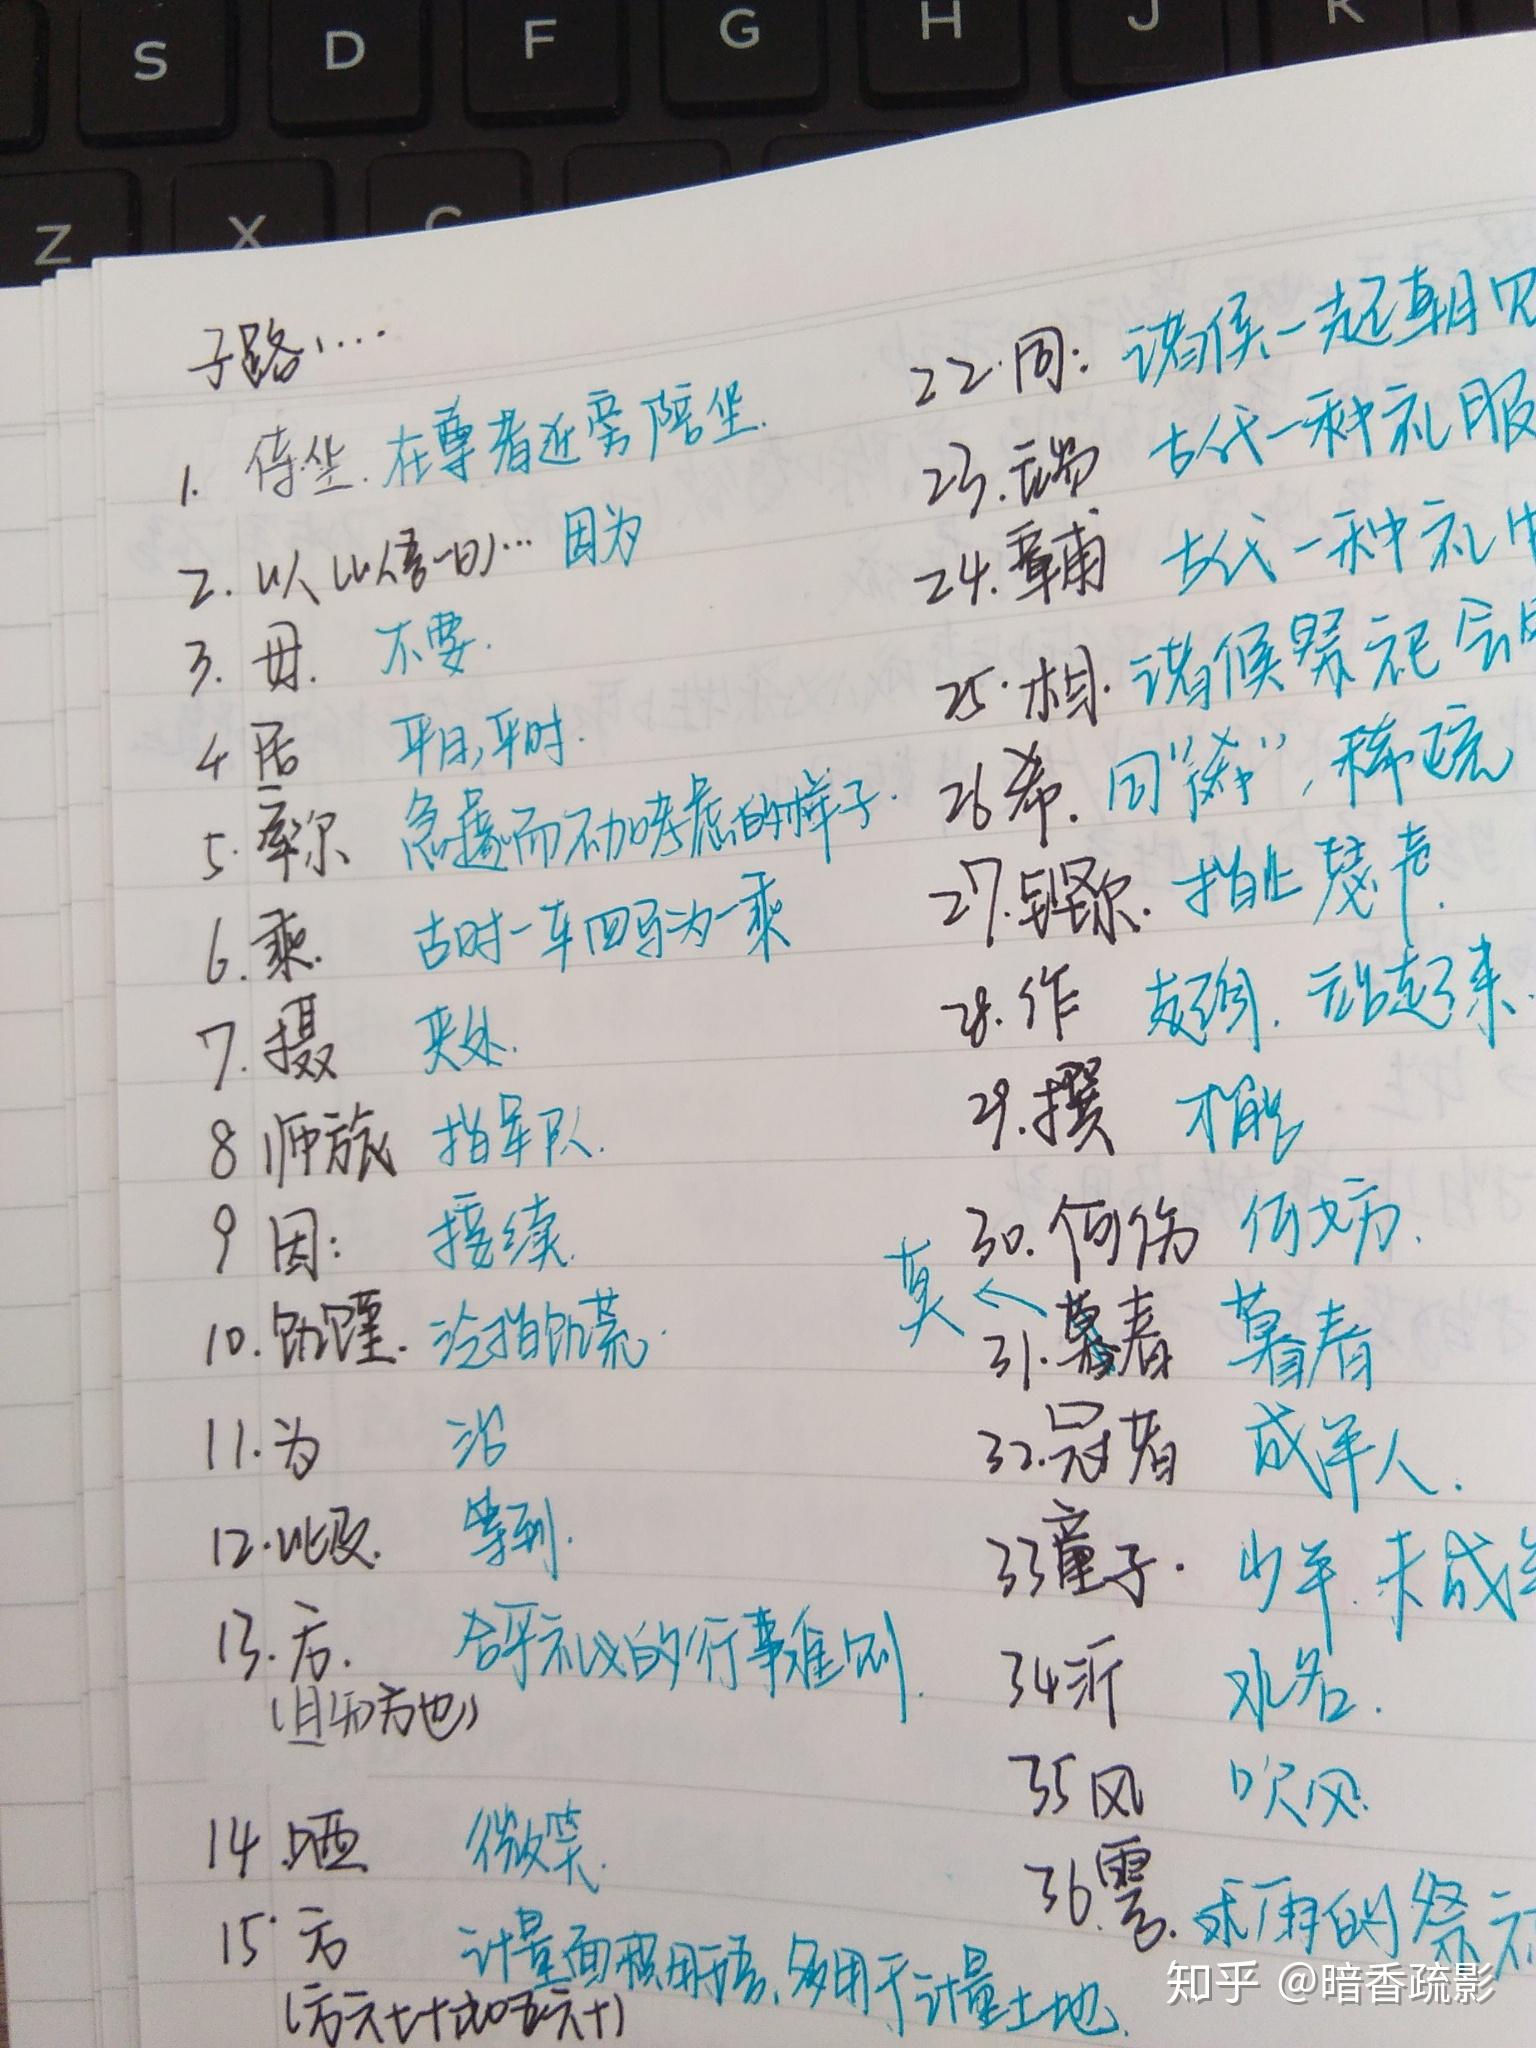 S D F G H J K
Z X C
子路、....
1. 侍坐. 在尊者近旁陪坐.
2. 以(以吾一日)... 因为
3. 毋. 不要.
4 居 平日,平时.
5. 率尔 急遽而不加考虑的样子.
6. 乘. 古时一车四马为一乘
7. 摄 夹处.
8 师旅 指军队.
9 因: 接续.
10. 饥馑. 泛指饥荒.
11. 为 治
12. 比及. 等到.
13. 方. 合乎礼义的行事准则.
(且知方也)
14 哂 微笑.
15. 方 计量面积用语,多用于计量土地.
(方六七十,如五六十)
22. 同: 诸侯一起朝见
23. 端 古代一种礼服
24. 章甫 古代一种礼
25. 相. 诸侯祭祀会
26 希. 同“稀”,稀疏
27. 铿尔. 指止瑟声.
28. 作 起身. 站起来.
29. 撰 才能
30. 何伤 何妨.
莫←
31. 暮春 暮春
32. 冠者 成年人.
33 童子. 少年.未成年
34 沂 水名.
35 风 吹风.
36. 雩. 求雨的祭
知乎 @暗香疏影